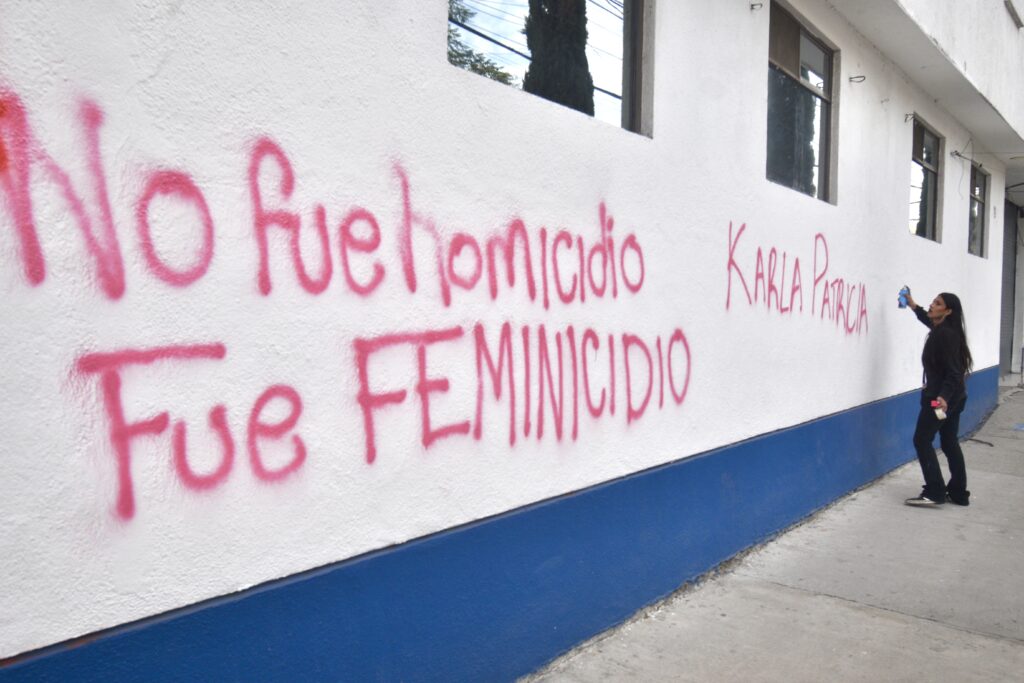 No fue homicidio
Fue FEMINICIDIO
KARLA PATRICIA